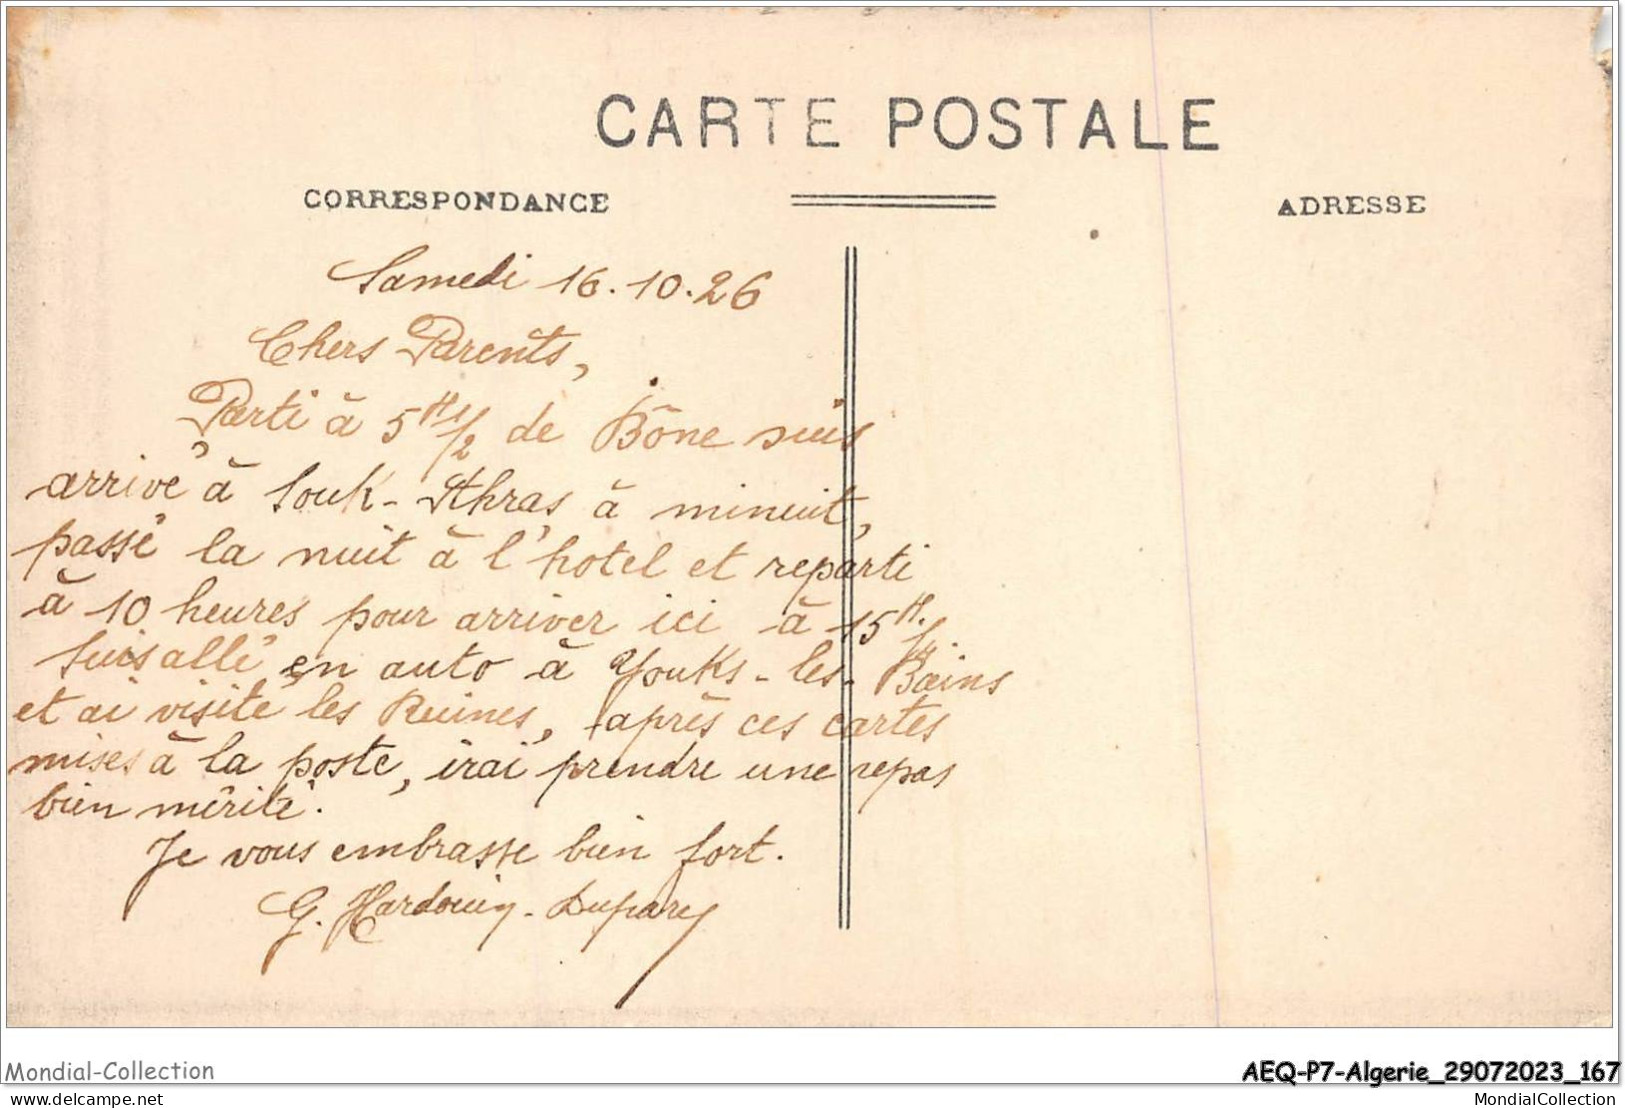 CARTE POSTALE
CORRESPONDANCE
ADRESSE
Samedi 16.10.26
Chers Parents,
Parti à 5 H 1/2 de Bône suis
arrivé à Souk-Ahras à minuit,
passé la nuit à l'hotel et reparti
à 10 heures pour arriver ici à 15 H.
Suis allé en auto à Youks-les-Bains
et ai visité les Ruines, après ces cartes
mises à la poste, irai prendre une repas
bien mérité.
Je vous embrasse bien fort.
G. Hardouin-Duparq
Mondial-Collection
AEQ-P7-Algerie_29072023_167
www.delcampe.net
MondialCollection